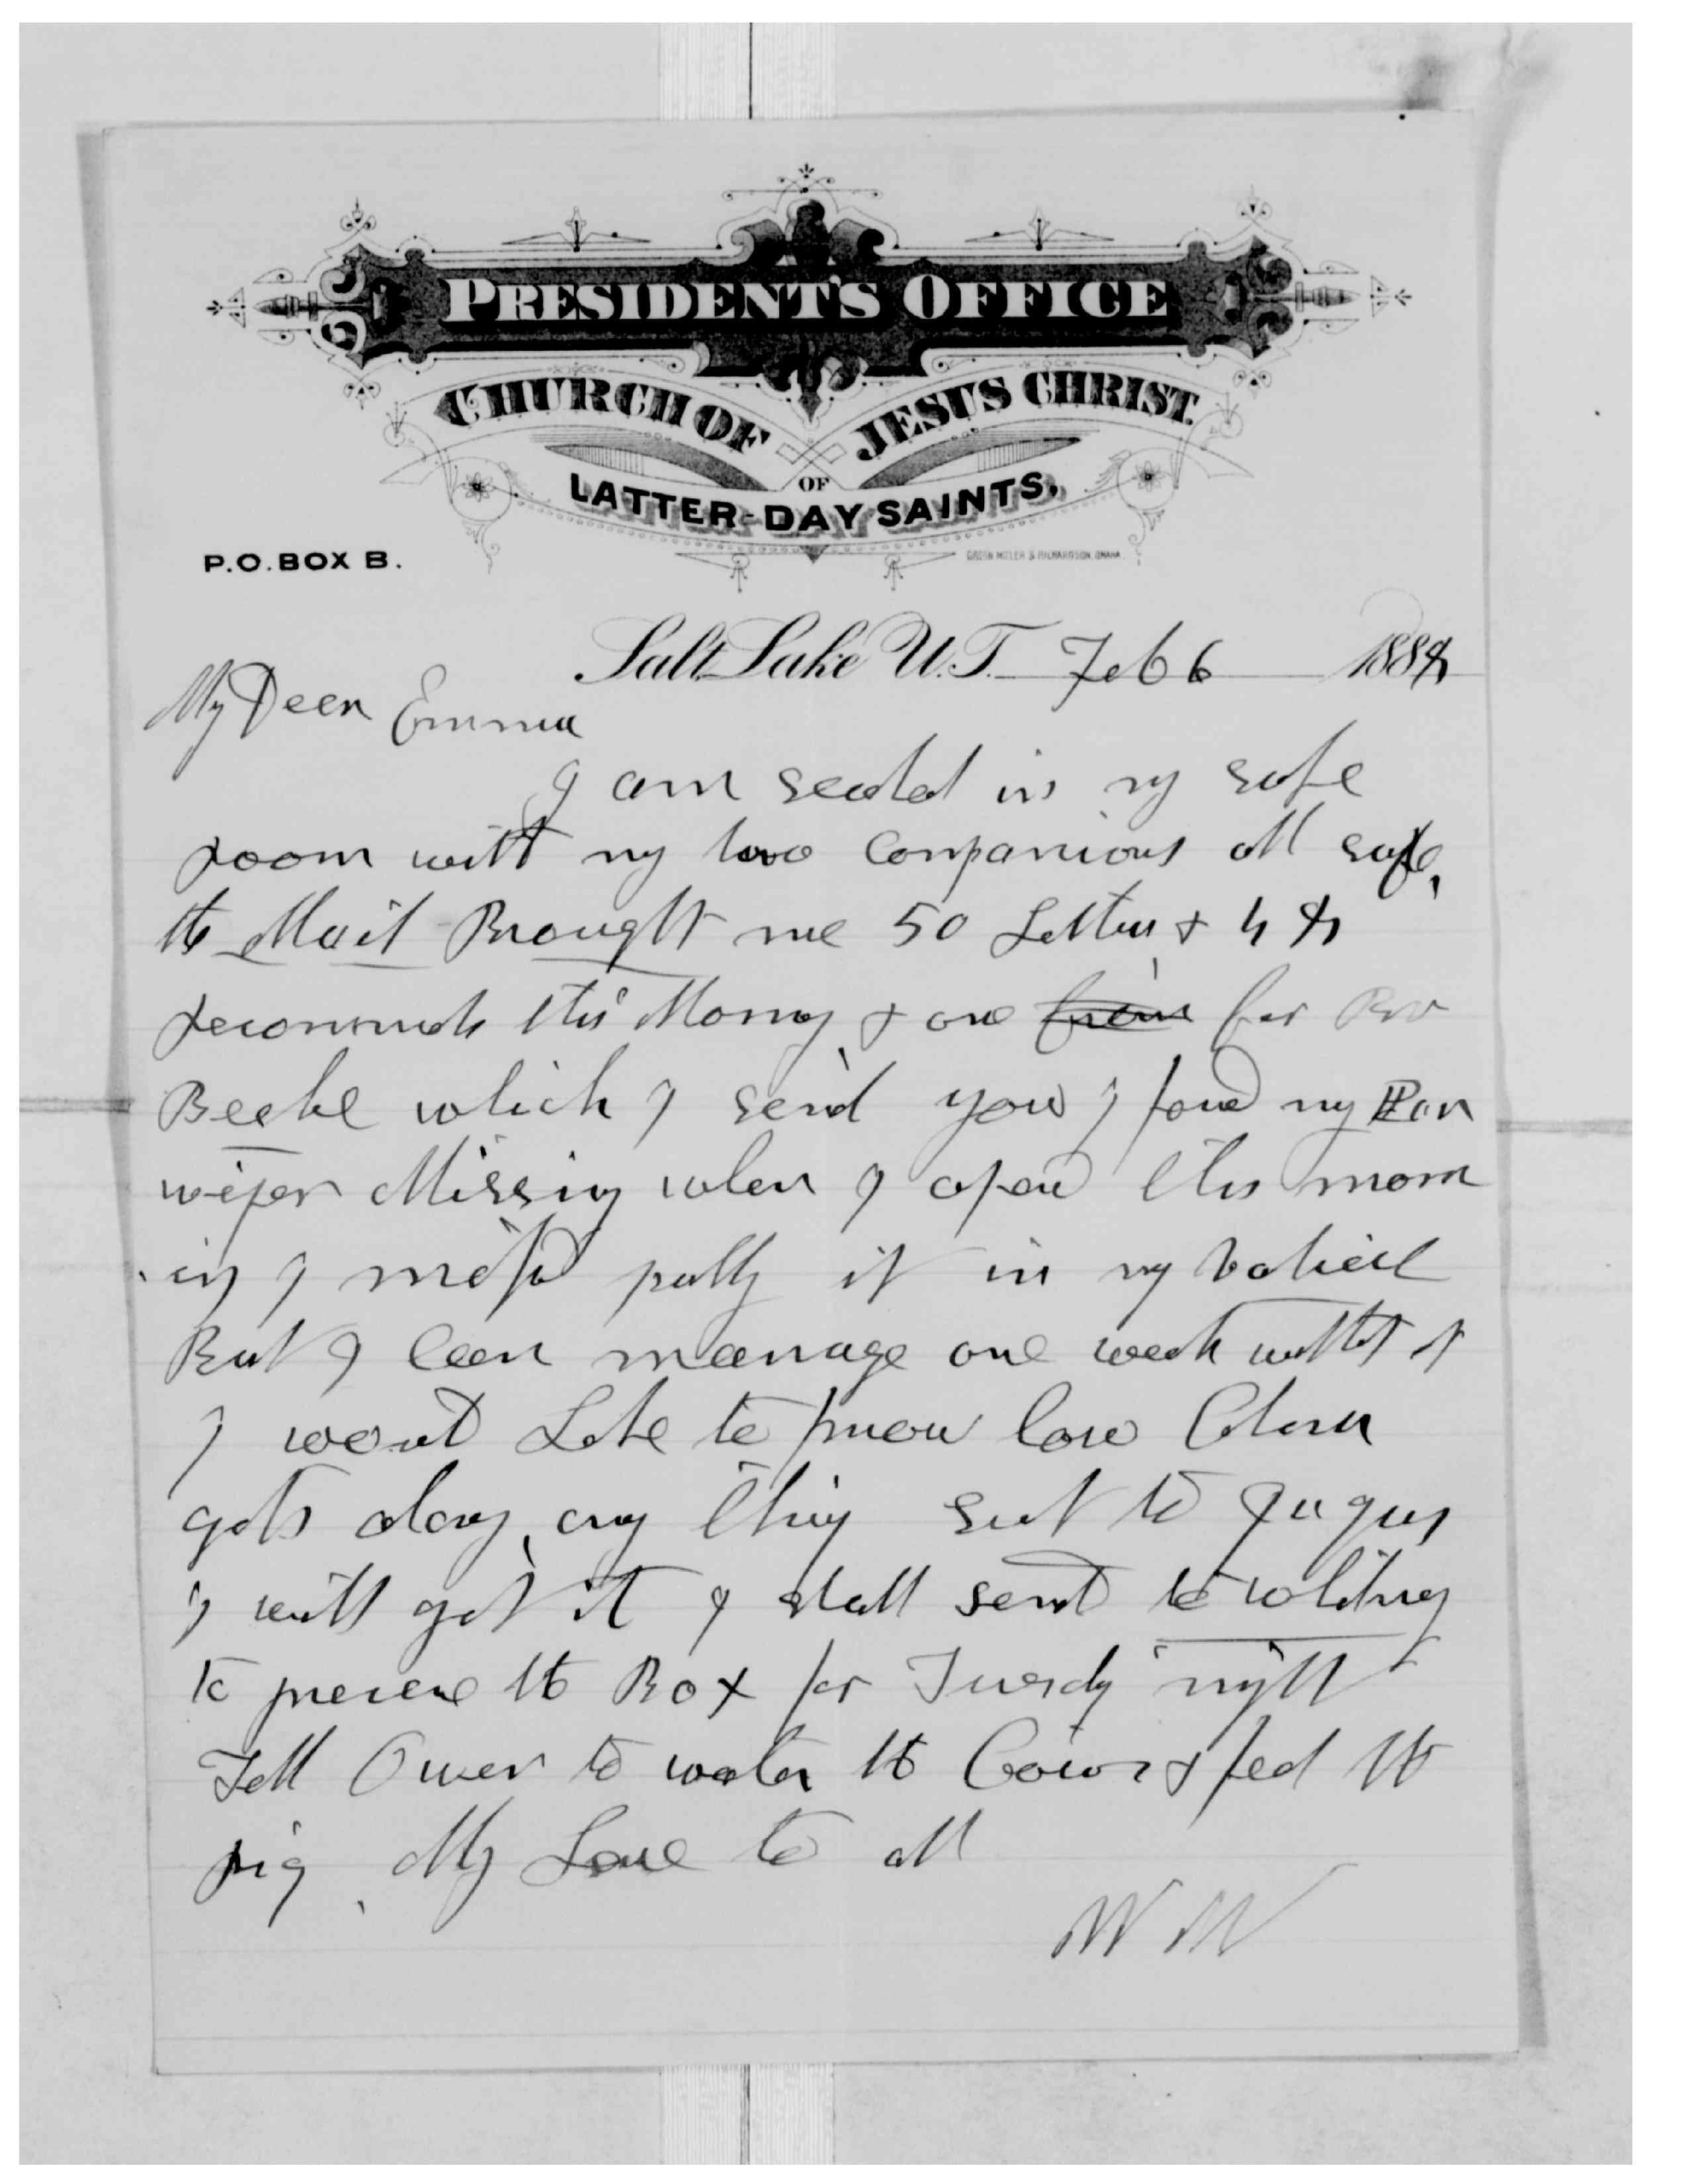 PRESIDENT'S OFFICE
CHURCH OF JESUS CHRIST
OF
LATTER-DAY SAINTS.
P.O. BOX B.
Salt Lake U.T. Feb 6 1888
My Dear Emma
I am seated in my safe
room with my two Companions all safe,
the Mail Brought me 50 Letters &
recommends this Morning & one for Bro
Beebe which I send you I found my Pen
wiper Missing when I opened this morn
ing I missed putting it in my valiece
But I Can manage one week without it
I would Like to know how Clara
gets along, any thing sent to
I will get it I shall send to Wilting
to prepare the Box for Tuesdy night
Tell Owen to water the Cows & feed the
pig. My Love to all
W W